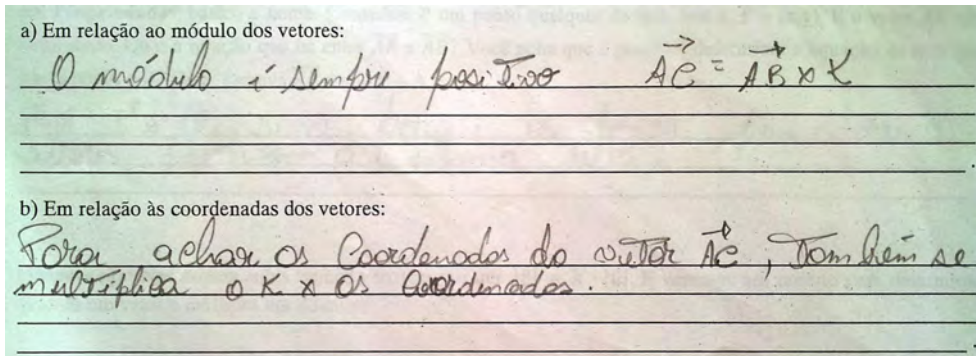 a) Em relação ao módulo dos vetores:
O módulo é sempre positivo AC = AB x K
b) Em relação às coordenadas dos vetores:
Para achar os Coordenadas do vetor AC, Também se
multiplica o K x os Coordenadas.